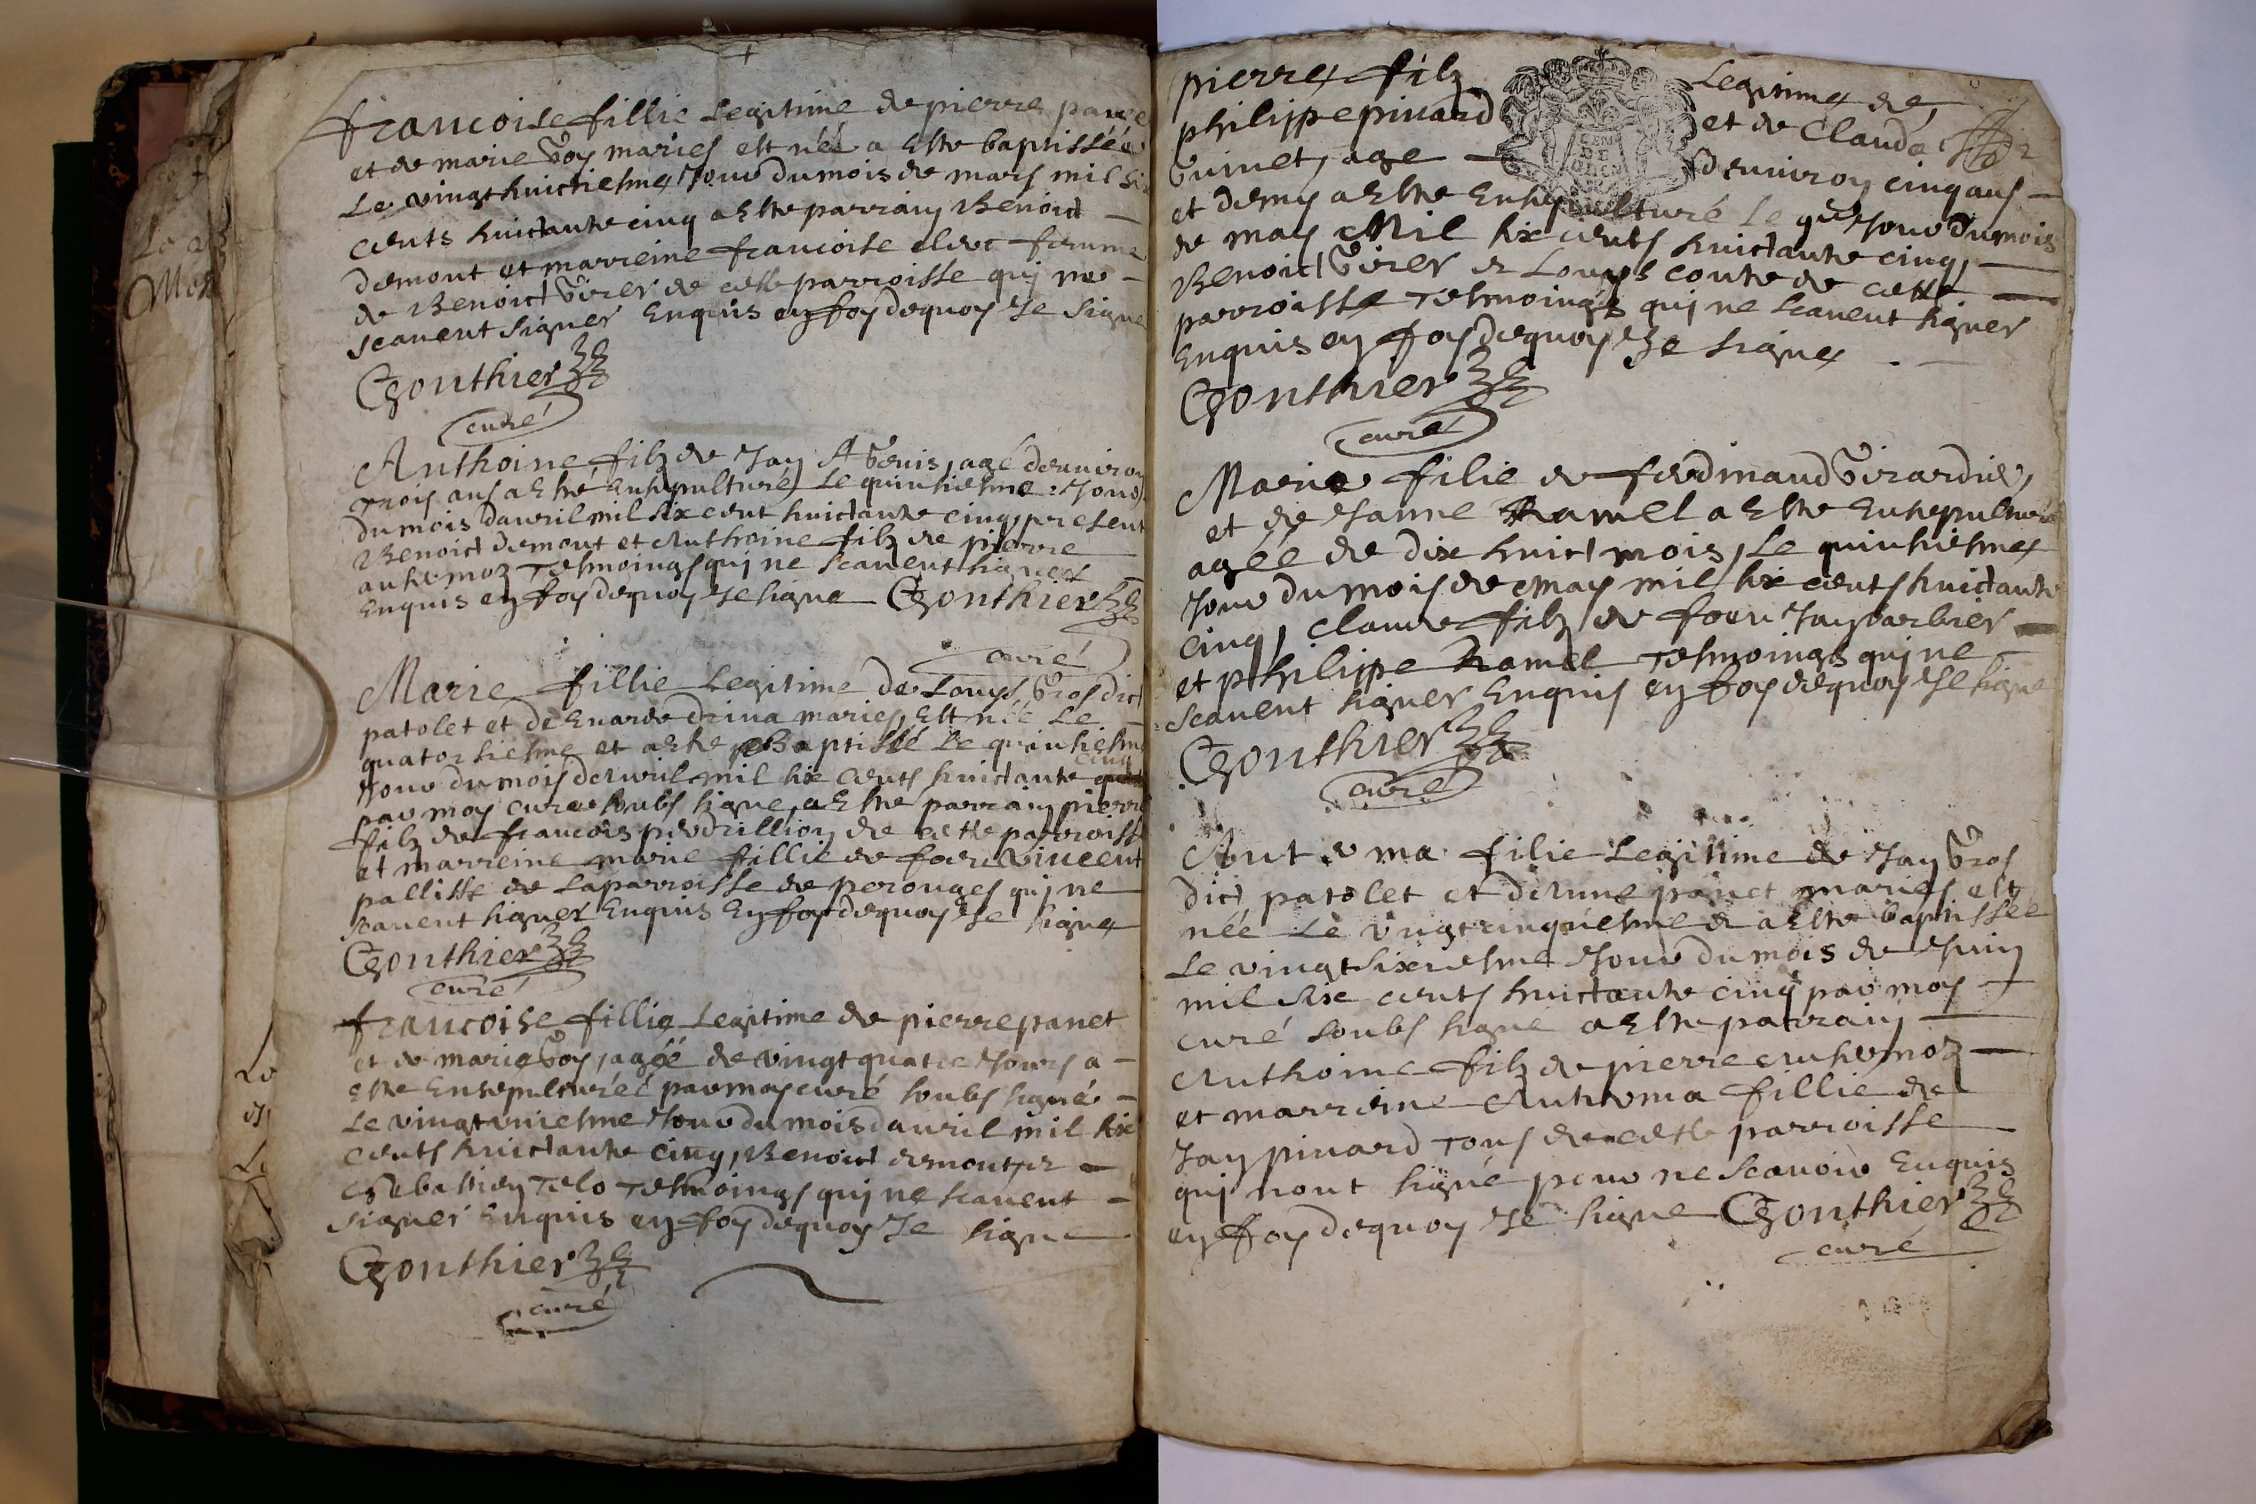 francoise fillie Legitime de pierre
et de marie Voy mariés est néé a Esté baptisséé
Le vingt huictiesme Jour du mois de mars mil
cents huictante cinq a Esté parrain Benoict
demont et marreine francoise femme
de Benoict Virer de cette parroisse qui ne
scavent signer Enquis en foy dequoy Je signe
Gonthier
curé
Anthoine filz de Jan agé denviron
trois ans a Esté Ensepulturé Le quinsiesme Jour
du mois davril mil six cent huictante cinq, present
Benoict demont et Anthoine filz de pierre
tesmoings qui ne scavent signer
Enquis en foy dequoy Je signe Gonthier
curé
Marie fillie Legitime de Louys Gros dict
patolet et de mariés, Est néé Le
quatorsiesme et a esté Baptissé Le quinsiesme
cinq
Jour du mois davril mil six cents huictante
par moy curé soubs signé, a Esté parrain pierre
filz de francois de cette parroisse
et marreine marie fillie de feu Vincent
pallisse de Laparroisse de perouges qui ne
scavent signer Enquis En foy dequoy Je signe
Gonthier
curé
francoise fillie Legitime de pierre panet
et de marie Voy, agéé de vingt quatre Jours a
esté Ensepulturéé par moy curé soubs signé
Le vingt uniesme Jour du mois davril mil six
cents huictante cinq, Benoict demont, et
Sebastien Telo tesmoings qui ne scavent
signer Enquis en foy dequoy Je signe
Gonthier
curé
pierre filz Legitime de
philippe pinard et de Claude
agé denviron cinq ans
et demy a Esté Ensepulturé le Jour du mois
de may Mil six cents huictante cinq,
Benoict Virer et Louys conte de cette
parroisse tesmoings qui ne scavent signer
Enquis en foy dequoy Je signe
Gonthier
curé
Marie filie de ferdinand Girardie,
et de Janne Ramel a Esté Ensepulturé
agéé de dix huict mois, Le quinsiesme
Jour du mois de May mil six cents huictante
cinq, Claude filz de feu Jan barbier
et philippe Ramel tesmoings qui ne
scavent signer Enquis en foy dequoy Je signe
Gonthier
curé
filie Legitime de Jan Gros
dict patolet et panet mariés est
néé Le vingtcinquiesme et a Esté baptisséé
Le vingt sixiesme Jour du mois de Juin
mil six cents huictante cinq par moy
curé soubs signé a Esté parrain
Anthoine filz de pierre
et marreine Anthoma fillie de
Jan pinard tous de cette parroisse
qui nont signé pour ne scavoir Enquis
en foy dequoy Je signe Gonthier
curé